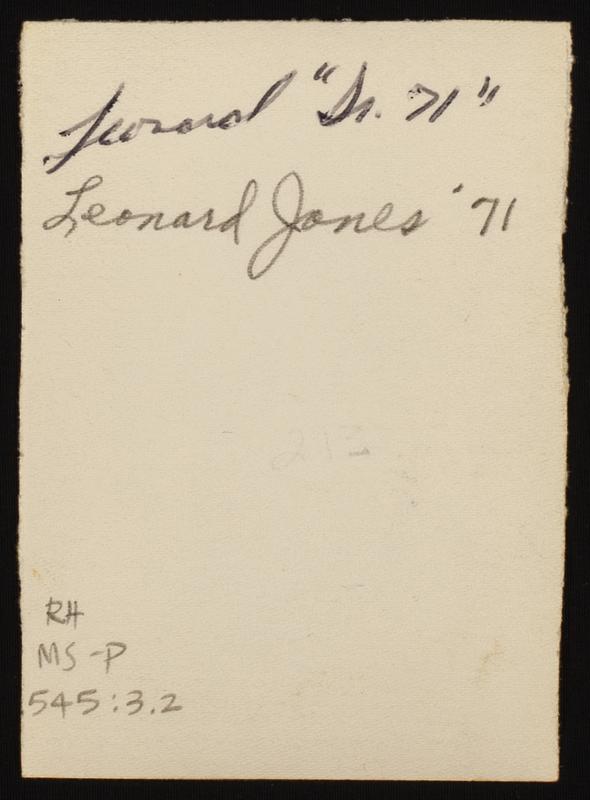 Leonard "Sr. 71"
Leonard Jones '71
213
RH
MS-P
545:3.2